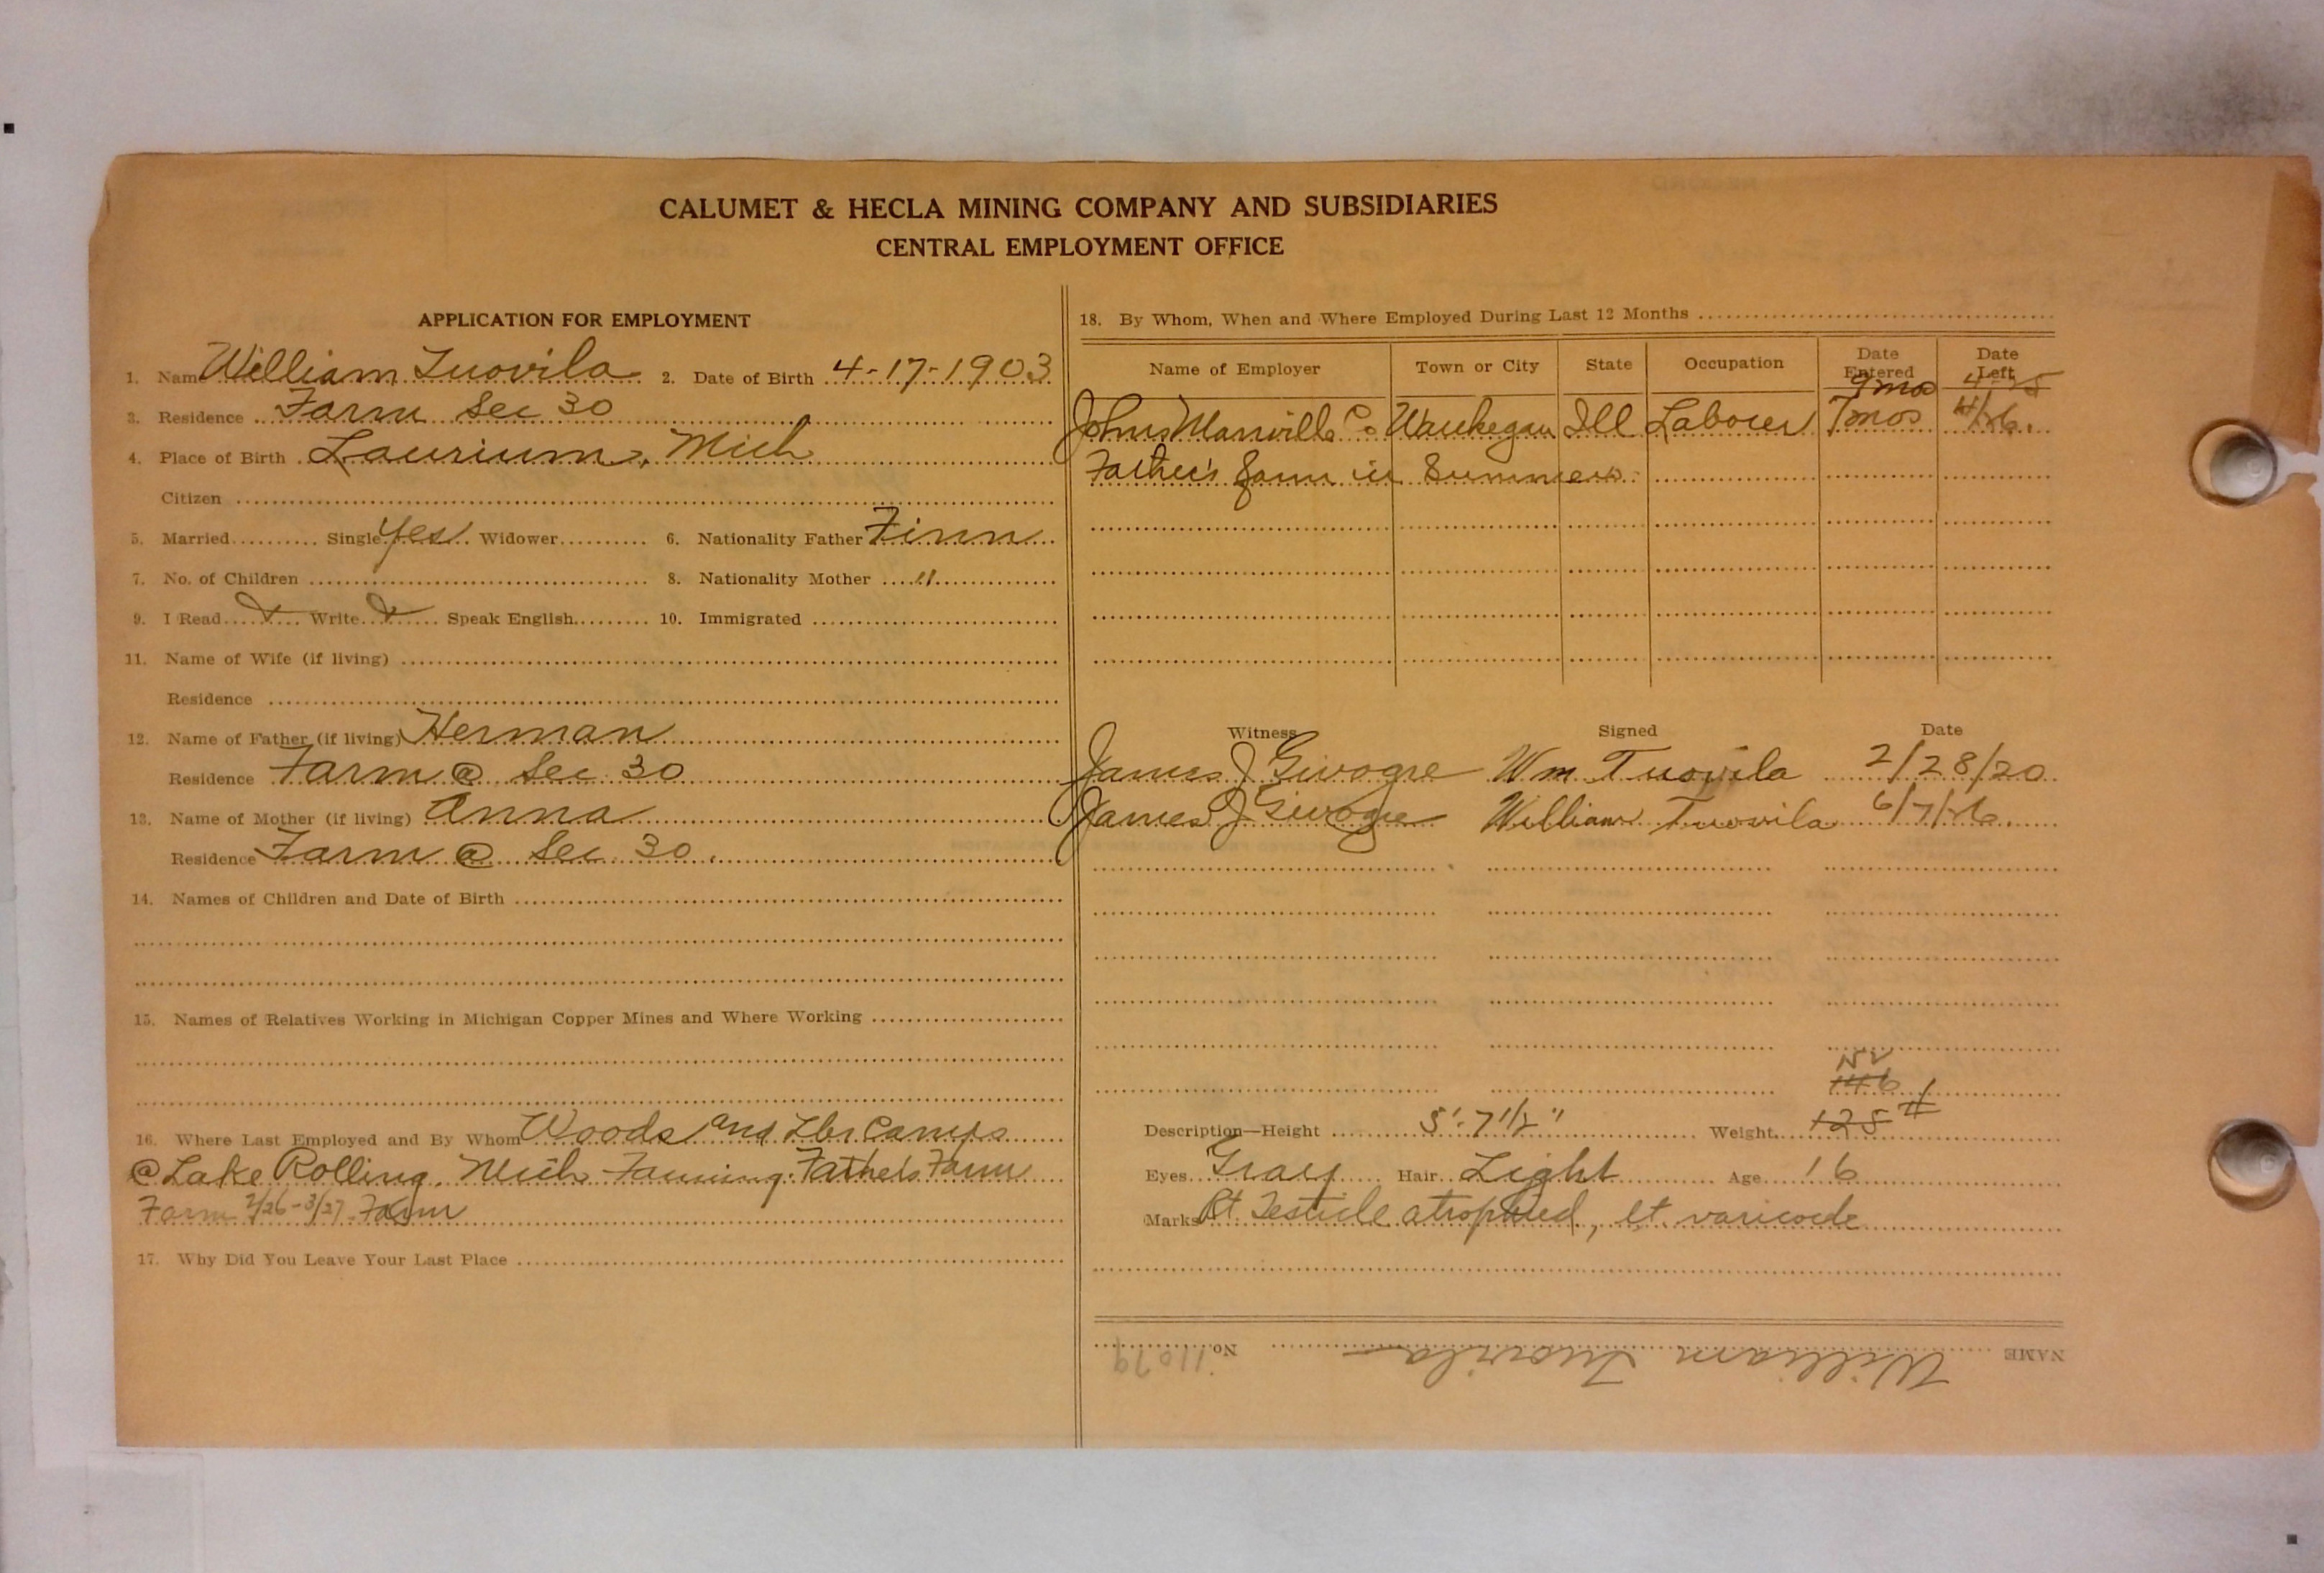 CALUMET & HECLA MINING COMPANY AND SUBSIDIARIES
CENTRAL EMPLOYMENT OFFICE
APPLICATION FOR EMPLOYMENT
1. Name William Tuovila 2. Date of Birth 4-17-1903
3. Residence Farm Sec 30
4. Place of Birth Laurium, Mich
Citizen
5. Married Single Yes Widower 6. Nationality Father Finn
7. No. of Children 8. Nationality Mother "
9. I Read ✓ Write ✓ Speak English 10. Immigrated
11. Name of Wife (if living)
Residence
12. Name of Father (if living) Herman
Residence Farm @ Sec 30
13. Name of Mother (if living) Anna
Residence Farm @ Sec 30.
14. Names of Children and Date of Birth
15. Names of Relatives Working in Michigan Copper Mines and Where Working
16. Where Last Employed and By Whom Woods and Lbr Camps
@ Lake Rolling. Mich Farming. Father's Farm
Farm 2/26-3/27. Farm
17. Why Did You Leave Your Last Place
18. By Whom, When and Where Employed During Last 12 Months
Name of Employer Town or City State Occupation Date Entered Date Left
Johns Manville Co Waukegan Ill Laborer 7mos 4/26.
Father's farm in Summers.
Witness Signed Date
James J Wm Tuovila 2/28/20
James J William Tuovila 6/7/26
Description—Height 5'-7 1/2" Weight 125 #
Eyes Gray Hair Light Age 16
Marks Rt Testicle atrophied, lt. varicocele
NAME William Tuovila No. 11079